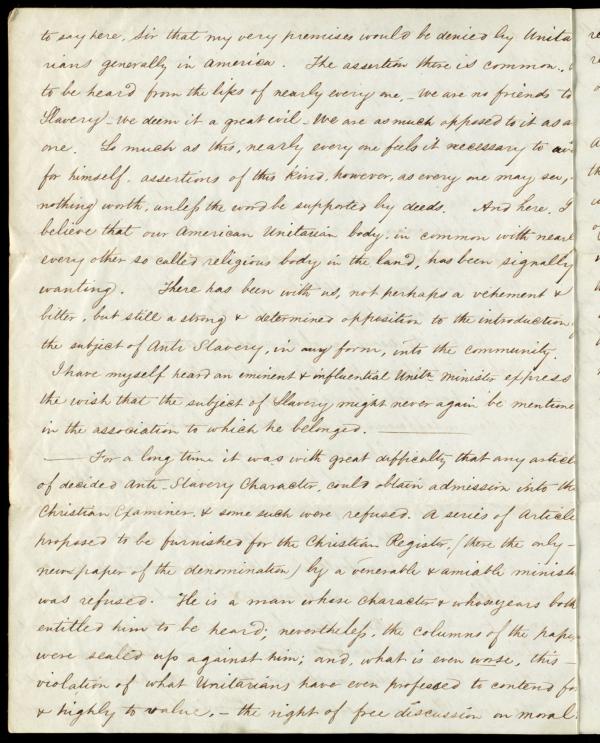 to say here, Sir that my very premises would be denied by Unita
rians generally in America. The assertion there is common,
to be heard from the lips of nearly every one, - we are no friends to
Slavery - we deem it a great evil - We are as much opposed to it as a
one. So much as this, nearly every one feels it necessary to av
for himself. assertions of this kind, however, as every one may see,
nothing worth, unless the word be supported by deeds. And here, I
believe that our American Unitarian body, in common with nearl
every other so called religious body in the land, has been signally
wanting. There has been with us, not perhaps a vehement &
bitter, but still a strong & determined opposition to the introduction
the subject of Anti Slavery, in any form, into the community.
I have myself heard an eminent & influential Unitn minister express
the wish that the subject of Slavery might never again be mentione
in the association to which he belonged. ———
— For a long time it was with great difficulty that any article
of decided Anti-Slavery Character, could obtain admission into the
Christian Examiner, & some such were refused. A series of Article
proposed to be furnished for the Christian Register, (then the only -
newspaper of the denomination) by a venerable & amiable ministe
was refused. He is a man whose character & whose years both
entitled him to be heard; nevertheless, the columns of the pape
were sealed up against him; and, what is even worse, this -
violation of what Unitarians have ever professed to contend for
& highly to value, - the right of free discussion on moral